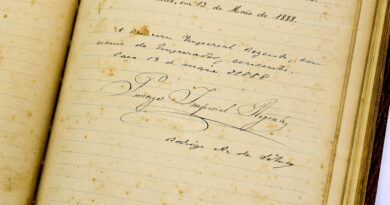 em 13 de Maio de 1888.
A Princeza Imperial Regente, em
nome do Imperador, consente.
Paço 13 de maio de 1888
Princeza Imperial Regente
Rodrigo A. da Silva